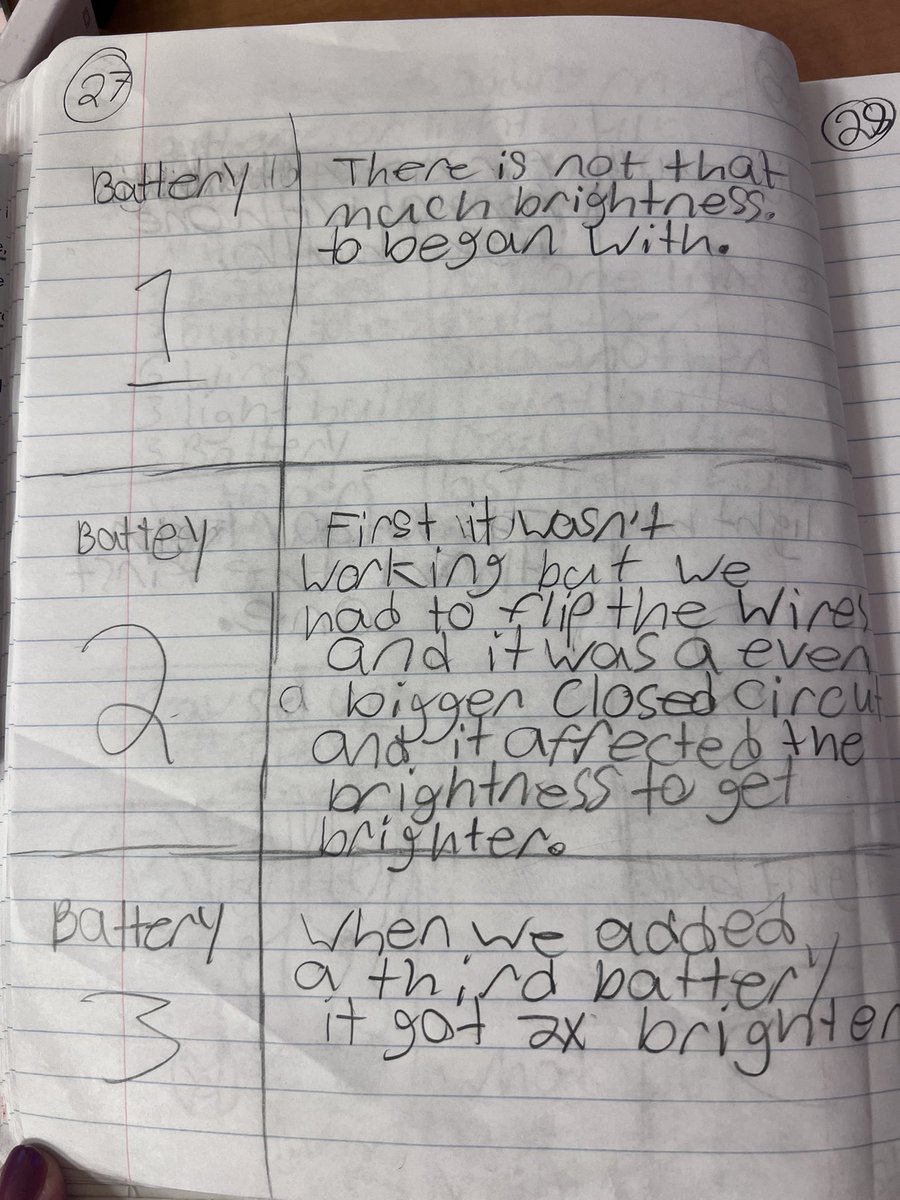 27
28
Battery
1
There is not that
much brightness.
to began with.
Battey
2
First it wasn't
working but we
had to flip the wires
and it was a even
a bigger closed circut
and it affected the
brightness to get
brighter.
Battery
3
When we added
a third battery
it got 2x brighter